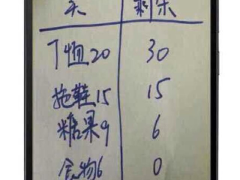 买 剩余
T恤20 30
拖鞋15 15
糖果9 6
食物6 0